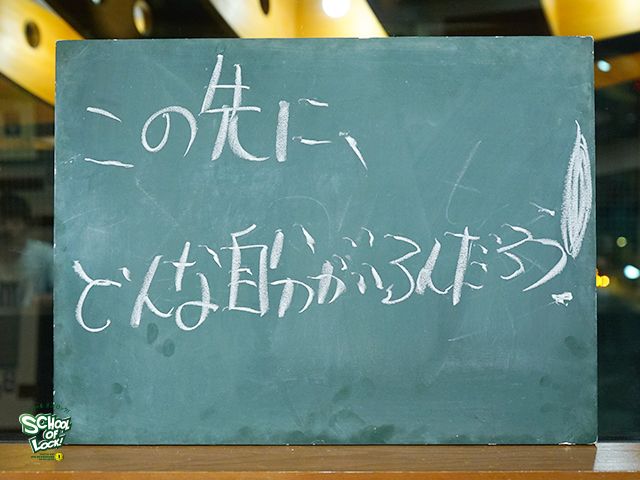 この先に、
どんな自分がいるんだろう!
SCHOOL
OF
LOCK!